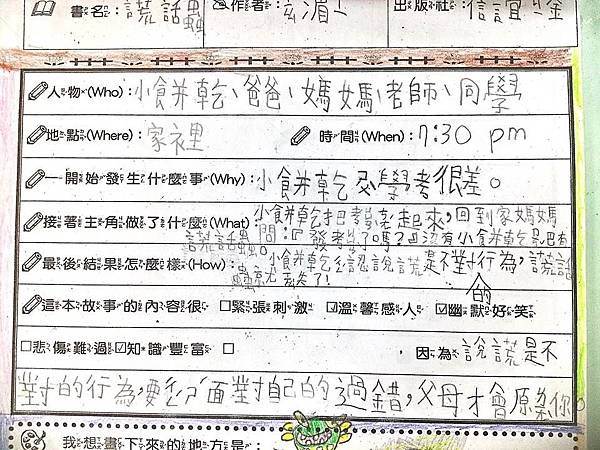 書名：謊話蟲 作者： 出版社：信誼
人物(Who)：小餅乾、爸爸、媽媽、老師、同學
地點(Where)：家裡 時間(When)：7:30 pm
一開始發生什麼事(Why)：小餅乾ㄕㄨ學考很差。
接著主角做了什麼(What) 小餅乾把考卷起來，回到家媽媽
問：『發考卷了嗎？』沒有小餅乾
謊話蟲。
最後結果怎麼樣(How)： 小餅乾ㄔㄥ認說謊是不對的行為，謊話
蟲就丟失了！
這本故事的內容很：□緊張刺激 ☑溫馨感人 ☑幽默好笑
□悲傷難過 ☑知識豐富 □ 因為說謊是不
對的行為，要面對自己的過錯，父母才會原諒你。
我想畫下來的地方是：